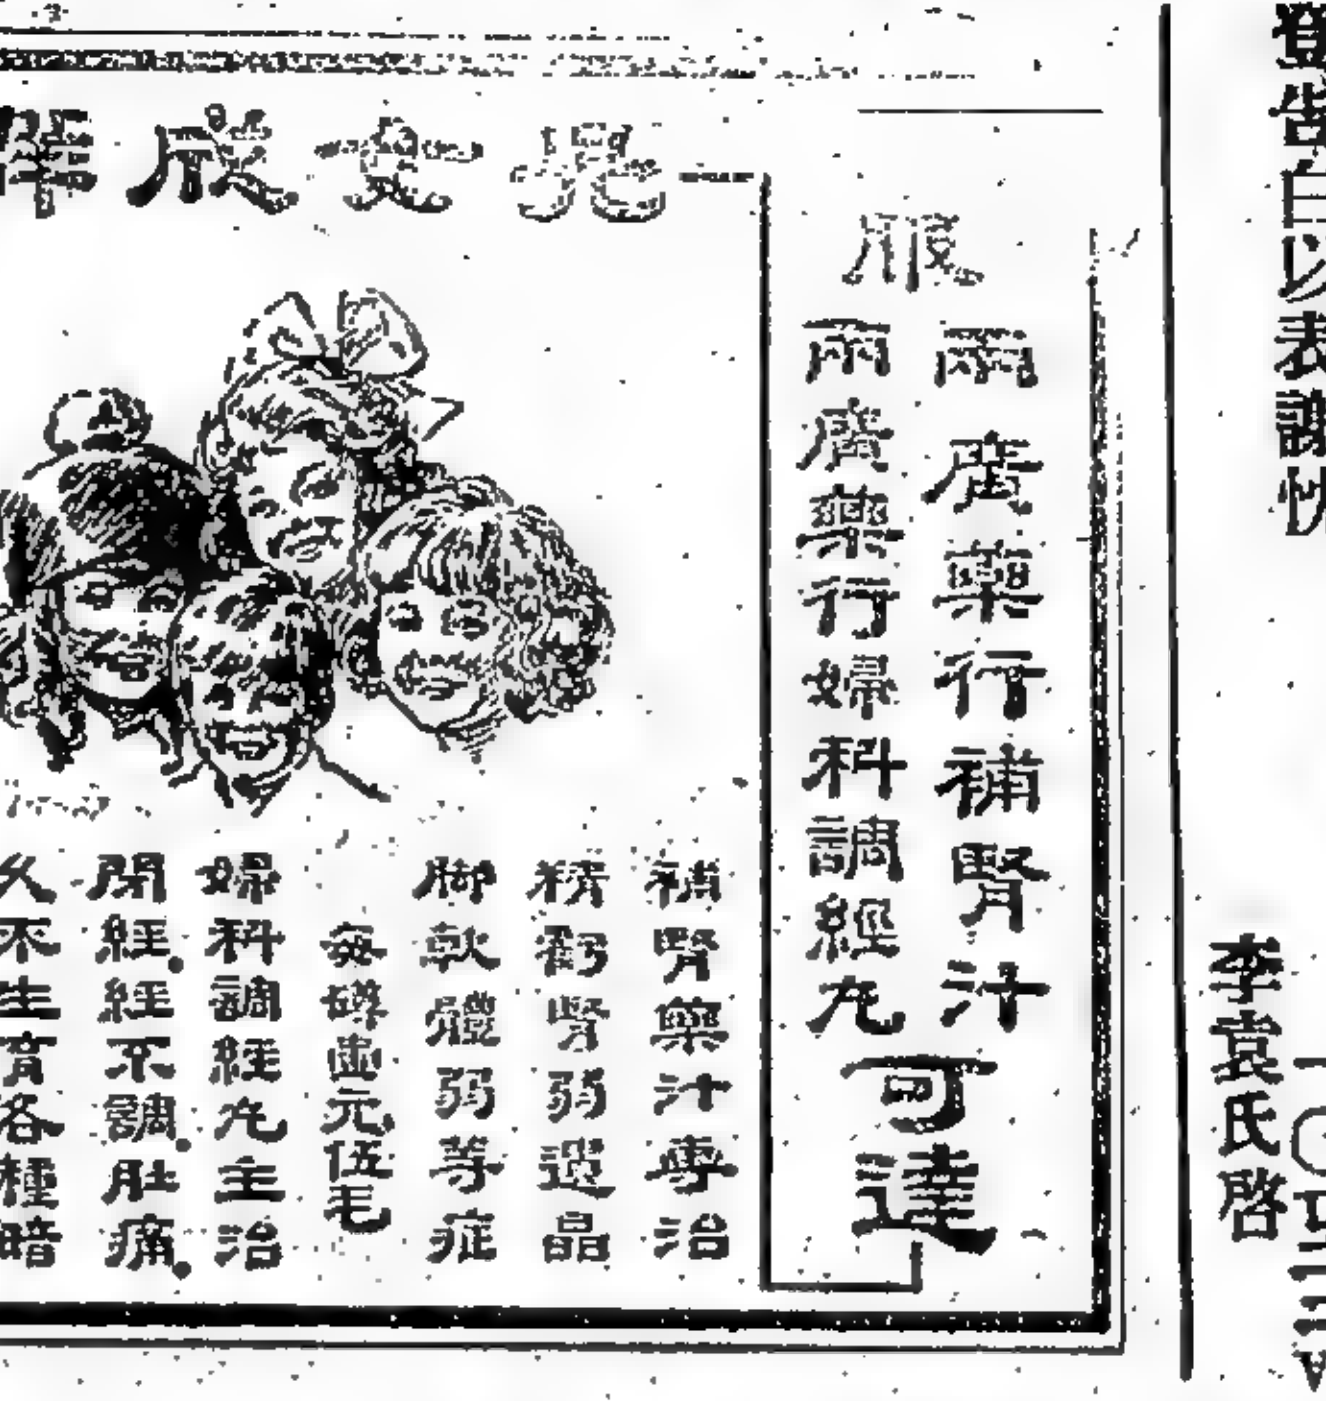 登告白以表謝忱
李袁氏啓
服
兩廣藥行補腎汁
兩廣藥行婦科調經丸
可達
兒女成群
補腎藥汁專治
精虧腎弱遺
脚軟體弱等症
每罇壹元伍毛
婦科調經丸主治
閉經經不調肚痛
久不生育各種暗